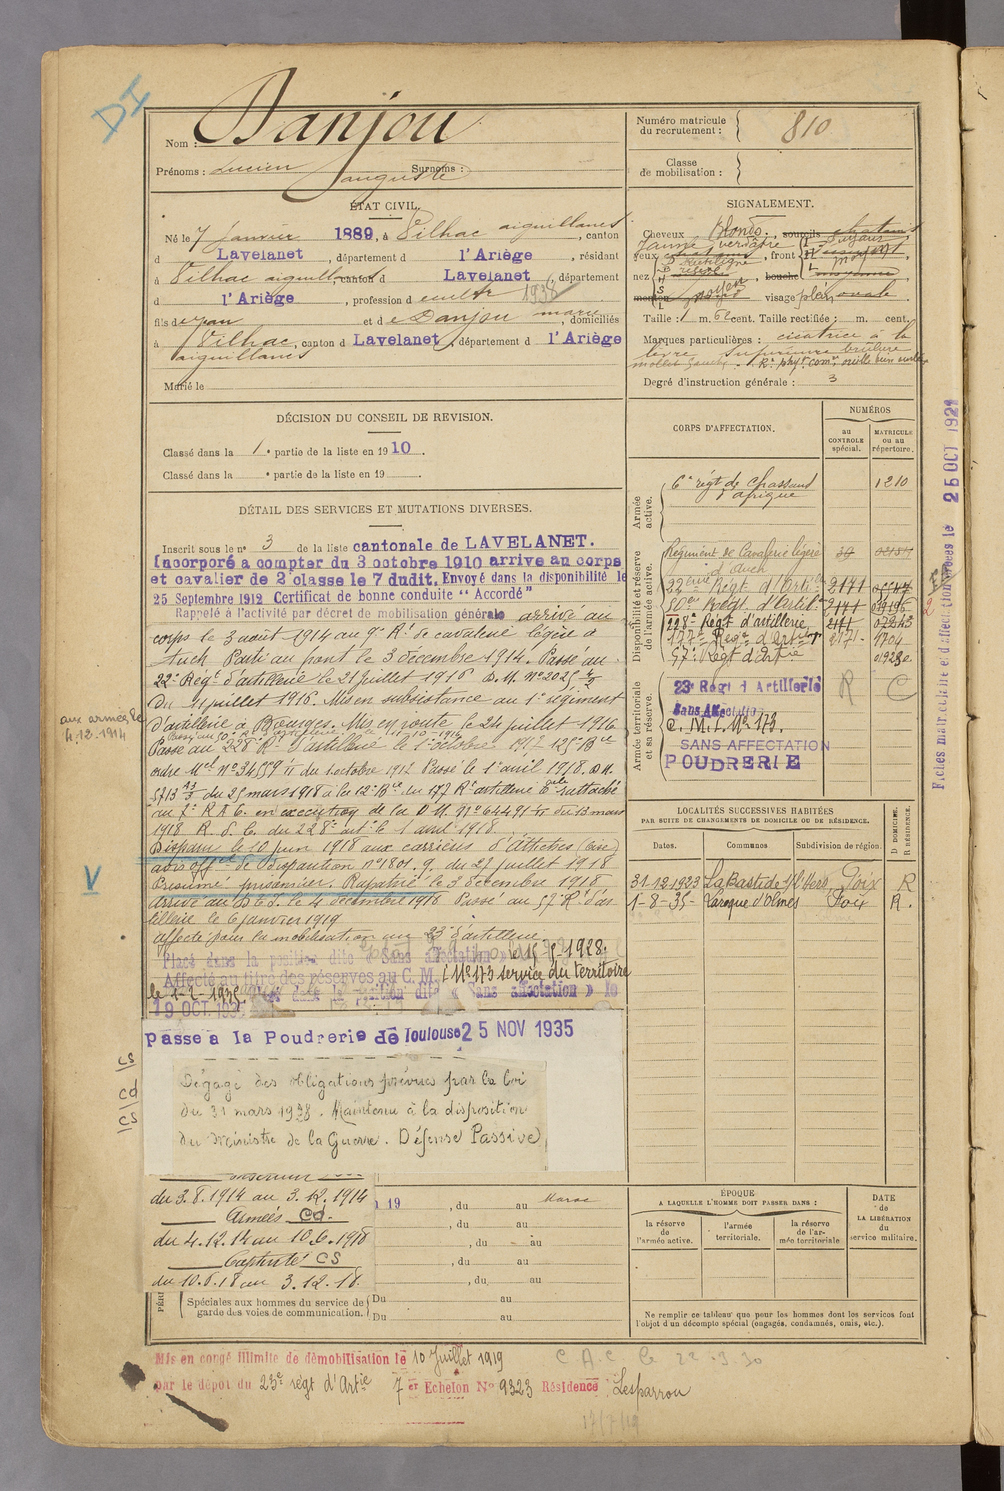 DI
Nom : Danjou
Prénoms : Lucien Auguste Surnoms :
Numéro matricule du recrutement : 810
Classe de mobilisation :
ÉTAT CIVIL.
Né le 7 janvier 1889, à Vilhac aiguillanes, canton
d Lavelanet, département d l'Ariège, résidant
à Vilhac aiguillanes, canton d Lavelanet, département
d l'Ariège, profession d cultr 1938
fils de Jean et de Danjou marie, domiciliés
à Vilhac aiguillanes, canton d Lavelanet, département d l'Ariège
Marié le
SIGNALEMENT.
Cheveux blonds. , sourcils chatains
yeux jaune verdâtre , front
nez , bouche moyenne
menton visage plein ovale.
Taille : 1 m. 62 cent. Taille rectifiée : m. cent.
Marques particulières : cicatrice à la
lèvre supérieure brûlure
mollet gauche
Degré d'instruction générale : 3
DÉCISION DU CONSEIL DE REVISION.
Classé dans la 1e partie de la liste en 1910.
Classé dans la e partie de la liste en 19
CORPS D'AFFECTATION.
NUMÉROS
au CONTROLE spécial.
MATRICULE ou au répertoire.
Armée active.
6e régt de chasseurs d'afrique 1210
Disponibilité et réserve de l'armée active.
Régiment de Cavalerie légère d'Auch
22ème Régt d'Artie 2171
50e Régt d'Artie 2171
228e Régt d'artillerie 2171
177e Régt d'Artie 2171 4704
57e Régt d'Artie
Armée territoriale et sa réserve.
23e Régt d'Artillerie R C
Sans Affectation
C. M. I. No 173
SANS AFFECTATION
POUDRERIE
Fiches matricule et d'affectation créées le 25 OCT 1921
DÉTAIL DES SERVICES ET MUTATIONS DIVERSES.
Inscrit sous le no 3 de la liste cantonale de LAVELANET.
Incorporé a compter du 3 octobre 1910 arrive au corps
et cavalier de 2e classe le 7 dudit. Envoyé dans la disponibilité le
25 Septembre 1912 Certificat de bonne conduite "Accordé"
Rappelé à l'activité par décret de mobilisation générale arrivé au
corps le 3 août 1914 au 9e Rt de cavalerie légère à
Auch Parti au front le 3 décembre 1914. Passé au
22e Régt d'artillerie le 21 juillet 1916 D.M. no 2025
du 11 juillet 1916. Mis en subsistance au 1er régiment
d'artillerie à Bourges. Mis en route le 24 juillet 1916
aux armées le 4.12.1914
Passé au 228e Rt d'artillerie le 1er octobre 1917 125e Bie
ordre Mel No 34559 du 1 octobre 1917 Passé le 1er avril 1918. D.M.
5713 du 25 mars 1918 à la 12e Bie du 177 Rt artillerie rattaché
au 7e R A C. en exécution de la D.M. no 64491 du 13 mars
1918 R. d. C. du 228e art. le 1 avril 1918.
Disparu le 10 juin 1918 aux carrières d'Attichy (Oise)
avis offel de disparition no 1801.9. du 21 juillet 1918
Présumé prisonnier. Rapatrié le 3 décembre 1918
V
arrivé au D.C.I. le 4 décembre 1918 Passé au 57e Rt d'ar
tillerie le 6 janvier 1919
affecté pour la mobilisation au 23e d'artillerie
Placé dans la position dite « Sans affectation » le 15-5-1928.
Affecté au titre des réserves au C. M. I No 173 service du territoire
le 1-2-1935 Placé dans la position dite « Sans affectation » le
19 OCT. 1935
passé a la Poudrerie de Toulouse 25 NOV 1935
Dégagé des obligations prévues par la loi
du 31 mars 1928. Maintenu à la disposition
du Ministre de la Guerre. Défense Passive
CS
Cd
CS
Intérieur
du 3.8.1914 au 3.12.1914
Armées Cd.
du 4.12.14 au 10.6.1918
Captivité CS
du 10.6.18 au 3.12.18.
19 , du au Maroc
, du au
, du au
, du au
, du au
Spéciales aux hommes du service de garde des voies de communication.
Du au
Du au
LOCALITÉS SUCCESSIVES HABITÉES
PAR SUITE DE CHANGEMENTS DE DOMICILE OU DE RÉSIDENCE.
Dates. Communes Subdivision de région. D DOMICILE. R RÉSIDENCE.
31-12-1923 La Bastide s/l'Hers Foix R
1-8-35- Laroque d'Olmes Foix R.
ÉPOQUE
A LAQUELLE L'HOMME DOIT PASSER DANS :
la réserve de l'armée active.
l'armée territoriale.
la réserve de l'armée territoriale
DATE de LA LIBÉRATION du service militaire.
Ne remplir ce tableau que pour les hommes dont les services font
l'objet d'un décompte spécial (engagés, condamnés, omis, etc.).
Mis en congé illimité de démobilisation le 10 Juillet 1919
par le dépôt du 23e régt d'Artie 7er Echelon No 9323 Résidence : Lesparrou
C A C le 22.3.30
17/7/19